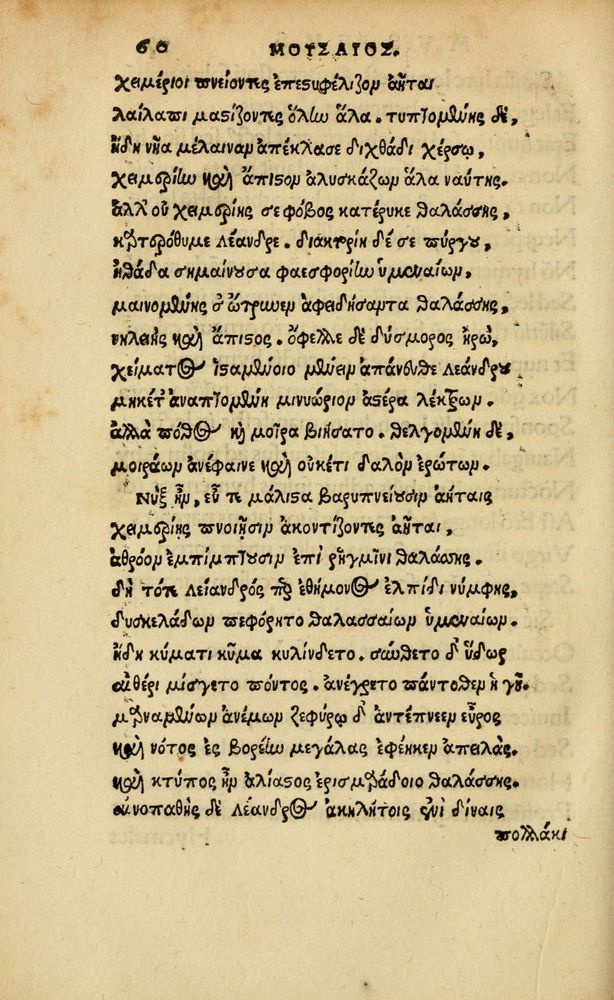 60 ΜΟΥΣΑΙΟΣ.
χειμέριοι πνείοντες ἐπεστυφέλιζον ἀῆται
λαίλαπι μαστίζοντες ὅλην ἅλα. τυπτομένης δὲ,
ἤδη νῆα μέλαιναν ἀπέκλασε διχθάδι χέρσῳ,
χειμερίην καὶ ἄπιστον ἀλυσκάζων ἅλα ναύτης.
ἀλλ' οὐ χειμερίης σε φόβος κατέρυκε θαλάσσης,
καρτερόθυμε λέανδρε. διακτορίη δέ σε πύργου,
ἠθάδα σημαίνουσα φαεσφορίην ὑμεναίων,
μαινομένης σ' ὤτρυνεν ἀφειδήσαντα θαλάσσης,
νηλειὴς καὶ ἄπιστος. ὄφελλε δὲ δύσμορος ἡρὼ,
χείματος ἱσταμένοιο μένειν ἀπάνευθε λεάνδρου
μηκέτ' ἀναπτομένη μινυώριον ἀστέρα λέκτρων.
ἀλλὰ πόθος καὶ μοῖρα βιήσατο. θελγομένη δὲ,
μοιράων ἀνέφαινε καὶ οὐκέτι δαλὸν ἐρώτων.
Νὺξ ἦν, εὖ τε μάλιστα βαρυπνείουσιν ἀήταις
χειμερίης πνοιῇσιν ἀκοντίζοντες ἀῆται,
ἀθρόον ἐμπίμπτουσιν ἐπὶ ῥηγμῖνι θαλάσσης.
δὴ τότε λείανδρός περ ἐθήμονος ἐλπίδι νύμφης,
δυσκελάδων πεφόρητο θαλασσαίων ὑμεναίων.
ἤδη κύματι κῦμα κυλίνδετο. σύνθετο δ' ὕδωρ
αἰθέρι μίσγετο πόντος. ἀνέγρετο πάντοθεν ἠχὴ.
μαρναμένων ἀνέμων ζεφύρῳ δ' ἀντέπνεεν εὖρος
καὶ νότος ἐς βορέην μεγάλας ἐφέηκεν ἀπειλάς.
καὶ κτύπος ἦν ἀλίαστος ἐρισμαράδοιο θαλάσσης.
αἰνοπαθὴς δὲ λέανδρος ἀκηλήτοις ἐνὶ δίναις
πολλάκι